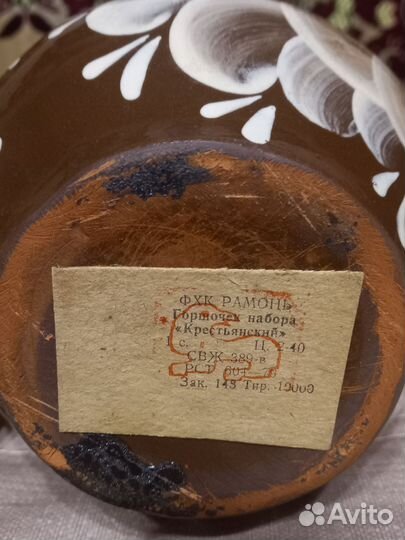 ФХК РАМОНЬ
Горшочек набора
«Крестьянский»
1 с. Ц. 2-40
СВЖ 389-в
РСТ 604
Зак. 143 Тир. 10000
Avito